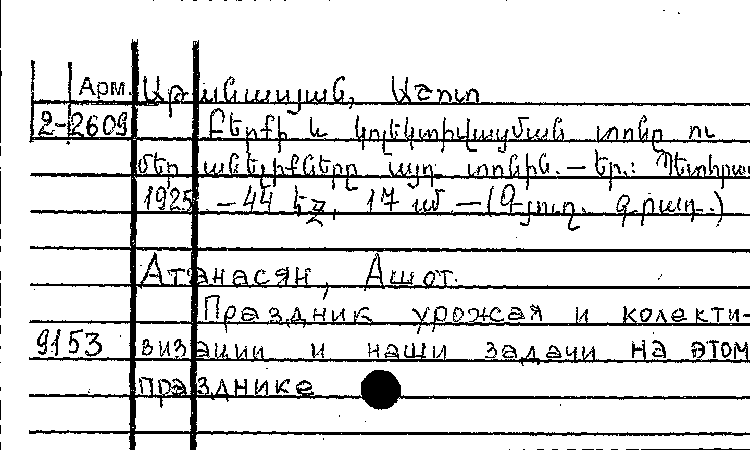 Арм. Աթանասյան, Աշոտ
2-2609 Բերքի և կոլեկտիվացման տոնը ու
մեր անելիքները այդ տոնին. — Եր.: Պետհրատ
1925 — 44 էջ, 17 սմ — (Գյուղ. գրադ.)
Атанасян, Ашот.
Праздник урожая и колекти-
9153 визации и наши задачи на этом
празднике